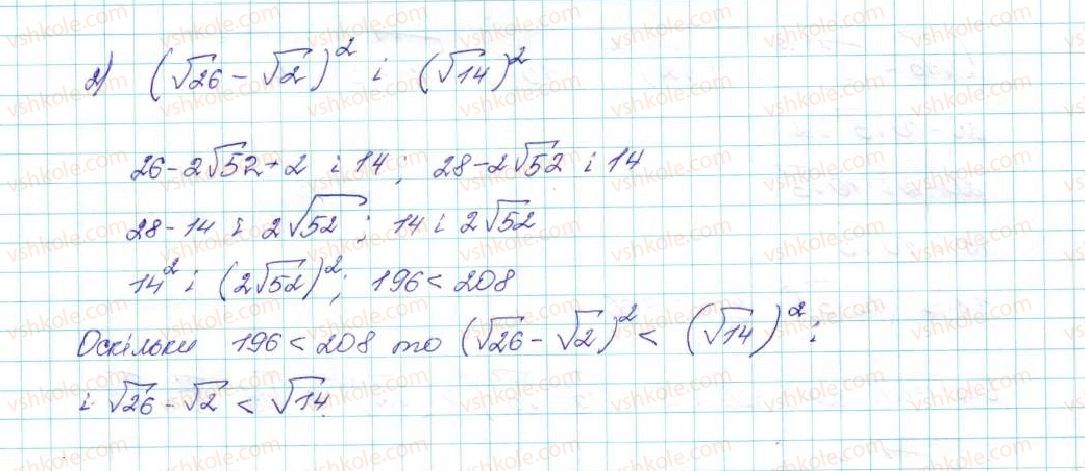 2) (√26 - √2)² і (√14)²
26 - 2√52 + 2 і 14; 28 - 2√52 і 14
28 - 14 і 2√52; 14 і 2√52
14² і (2√52)²; 196 < 208
Оскільки 196 < 208 то (√26 - √2)² < (√14)²;
і √26 - √2 < √14.